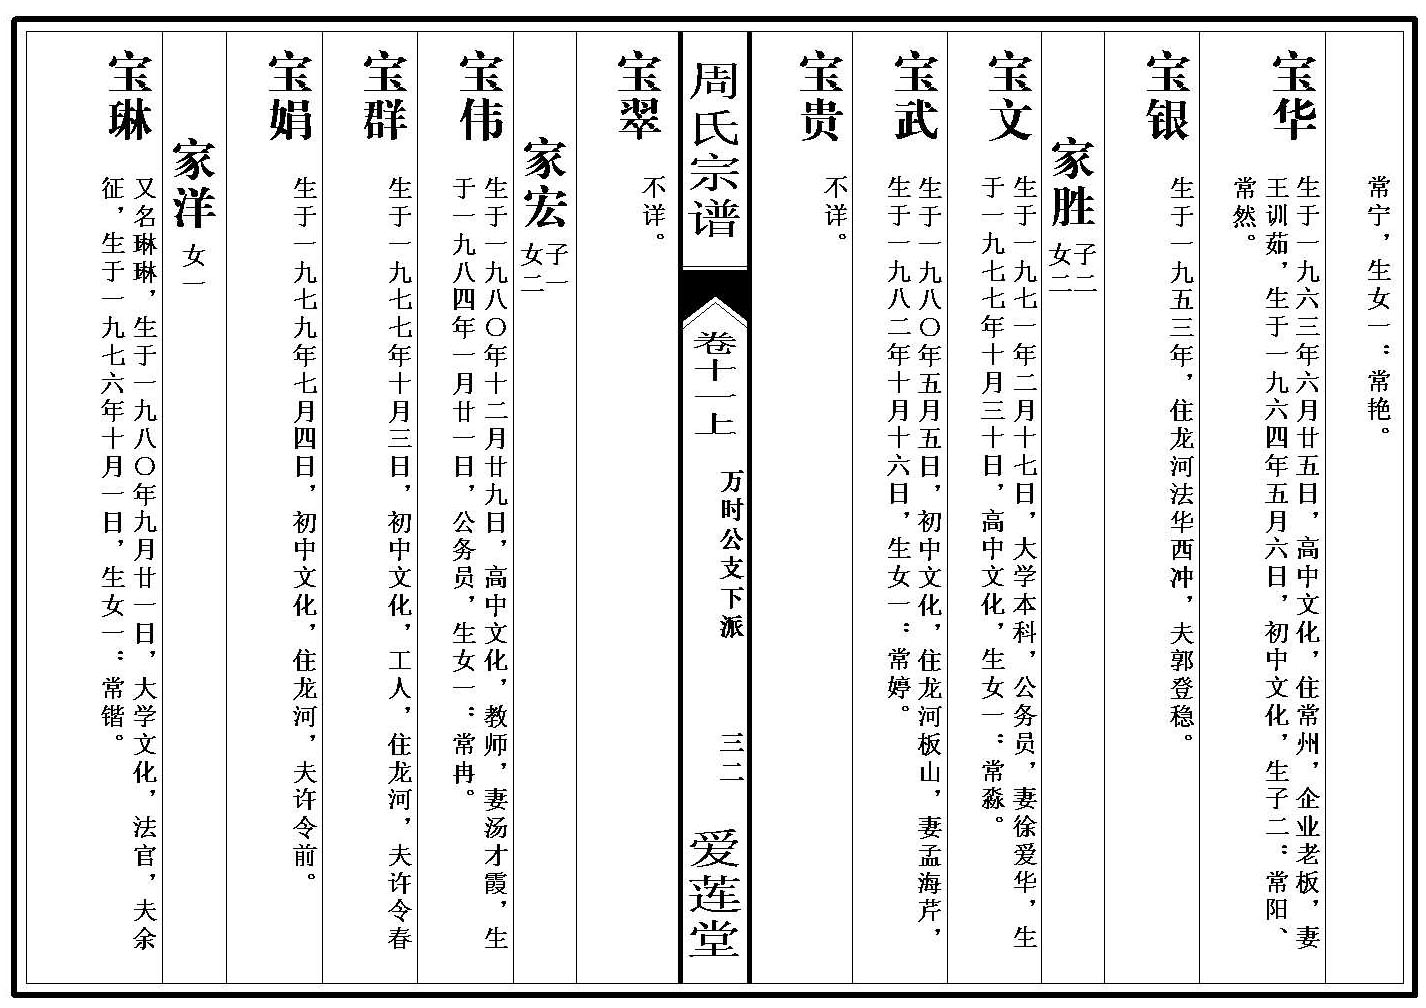 常宁，生女一：常艳。
宝华
生于一九六三年六月廿五日，高中文化，住常州，企业老板，妻
王训茹，生于一九六四年五月六日，初中文化，生子二：常阳、
常然。
宝银
生于一九五三年，住龙河法华西冲，夫郭登稳。
家胜
子二
女二
宝文
生于一九七一年二月十七日，大学本科，公务员，妻徐爱华，生
于一九七七年十月三十日，高中文化，生女一：常淼。
宝武
生于一九八〇年五月五日，初中文化，住龙河板山，妻孟海芹，
生于一九八二年十月十六日，生女一：常婷。
宝贵
不详。
周氏宗谱
卷十一上
万时公支下派
三二
爱莲堂
宝翠
不详。
家宏
子一
女二
宝伟
生于一九八〇年十二月廿九日，高中文化，教师，妻汤才霞，生
于一九八四年一月廿一日，公务员，生女一：常冉。
宝群
生于一九七七年十月三日，初中文化，工人，住龙河，夫许令春
宝娟
生于一九七九年七月四日，初中文化，住龙河，夫许令前。
家洋
女一
宝琳
又名琳琳，生于一九八〇年九月廿一日，大学文化，法官，夫余
征，生于一九七六年十月一日，生女一：常锴。